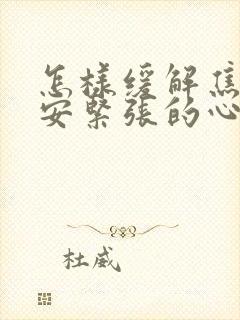 怎樣緩解焦
安緊張的心
杜威